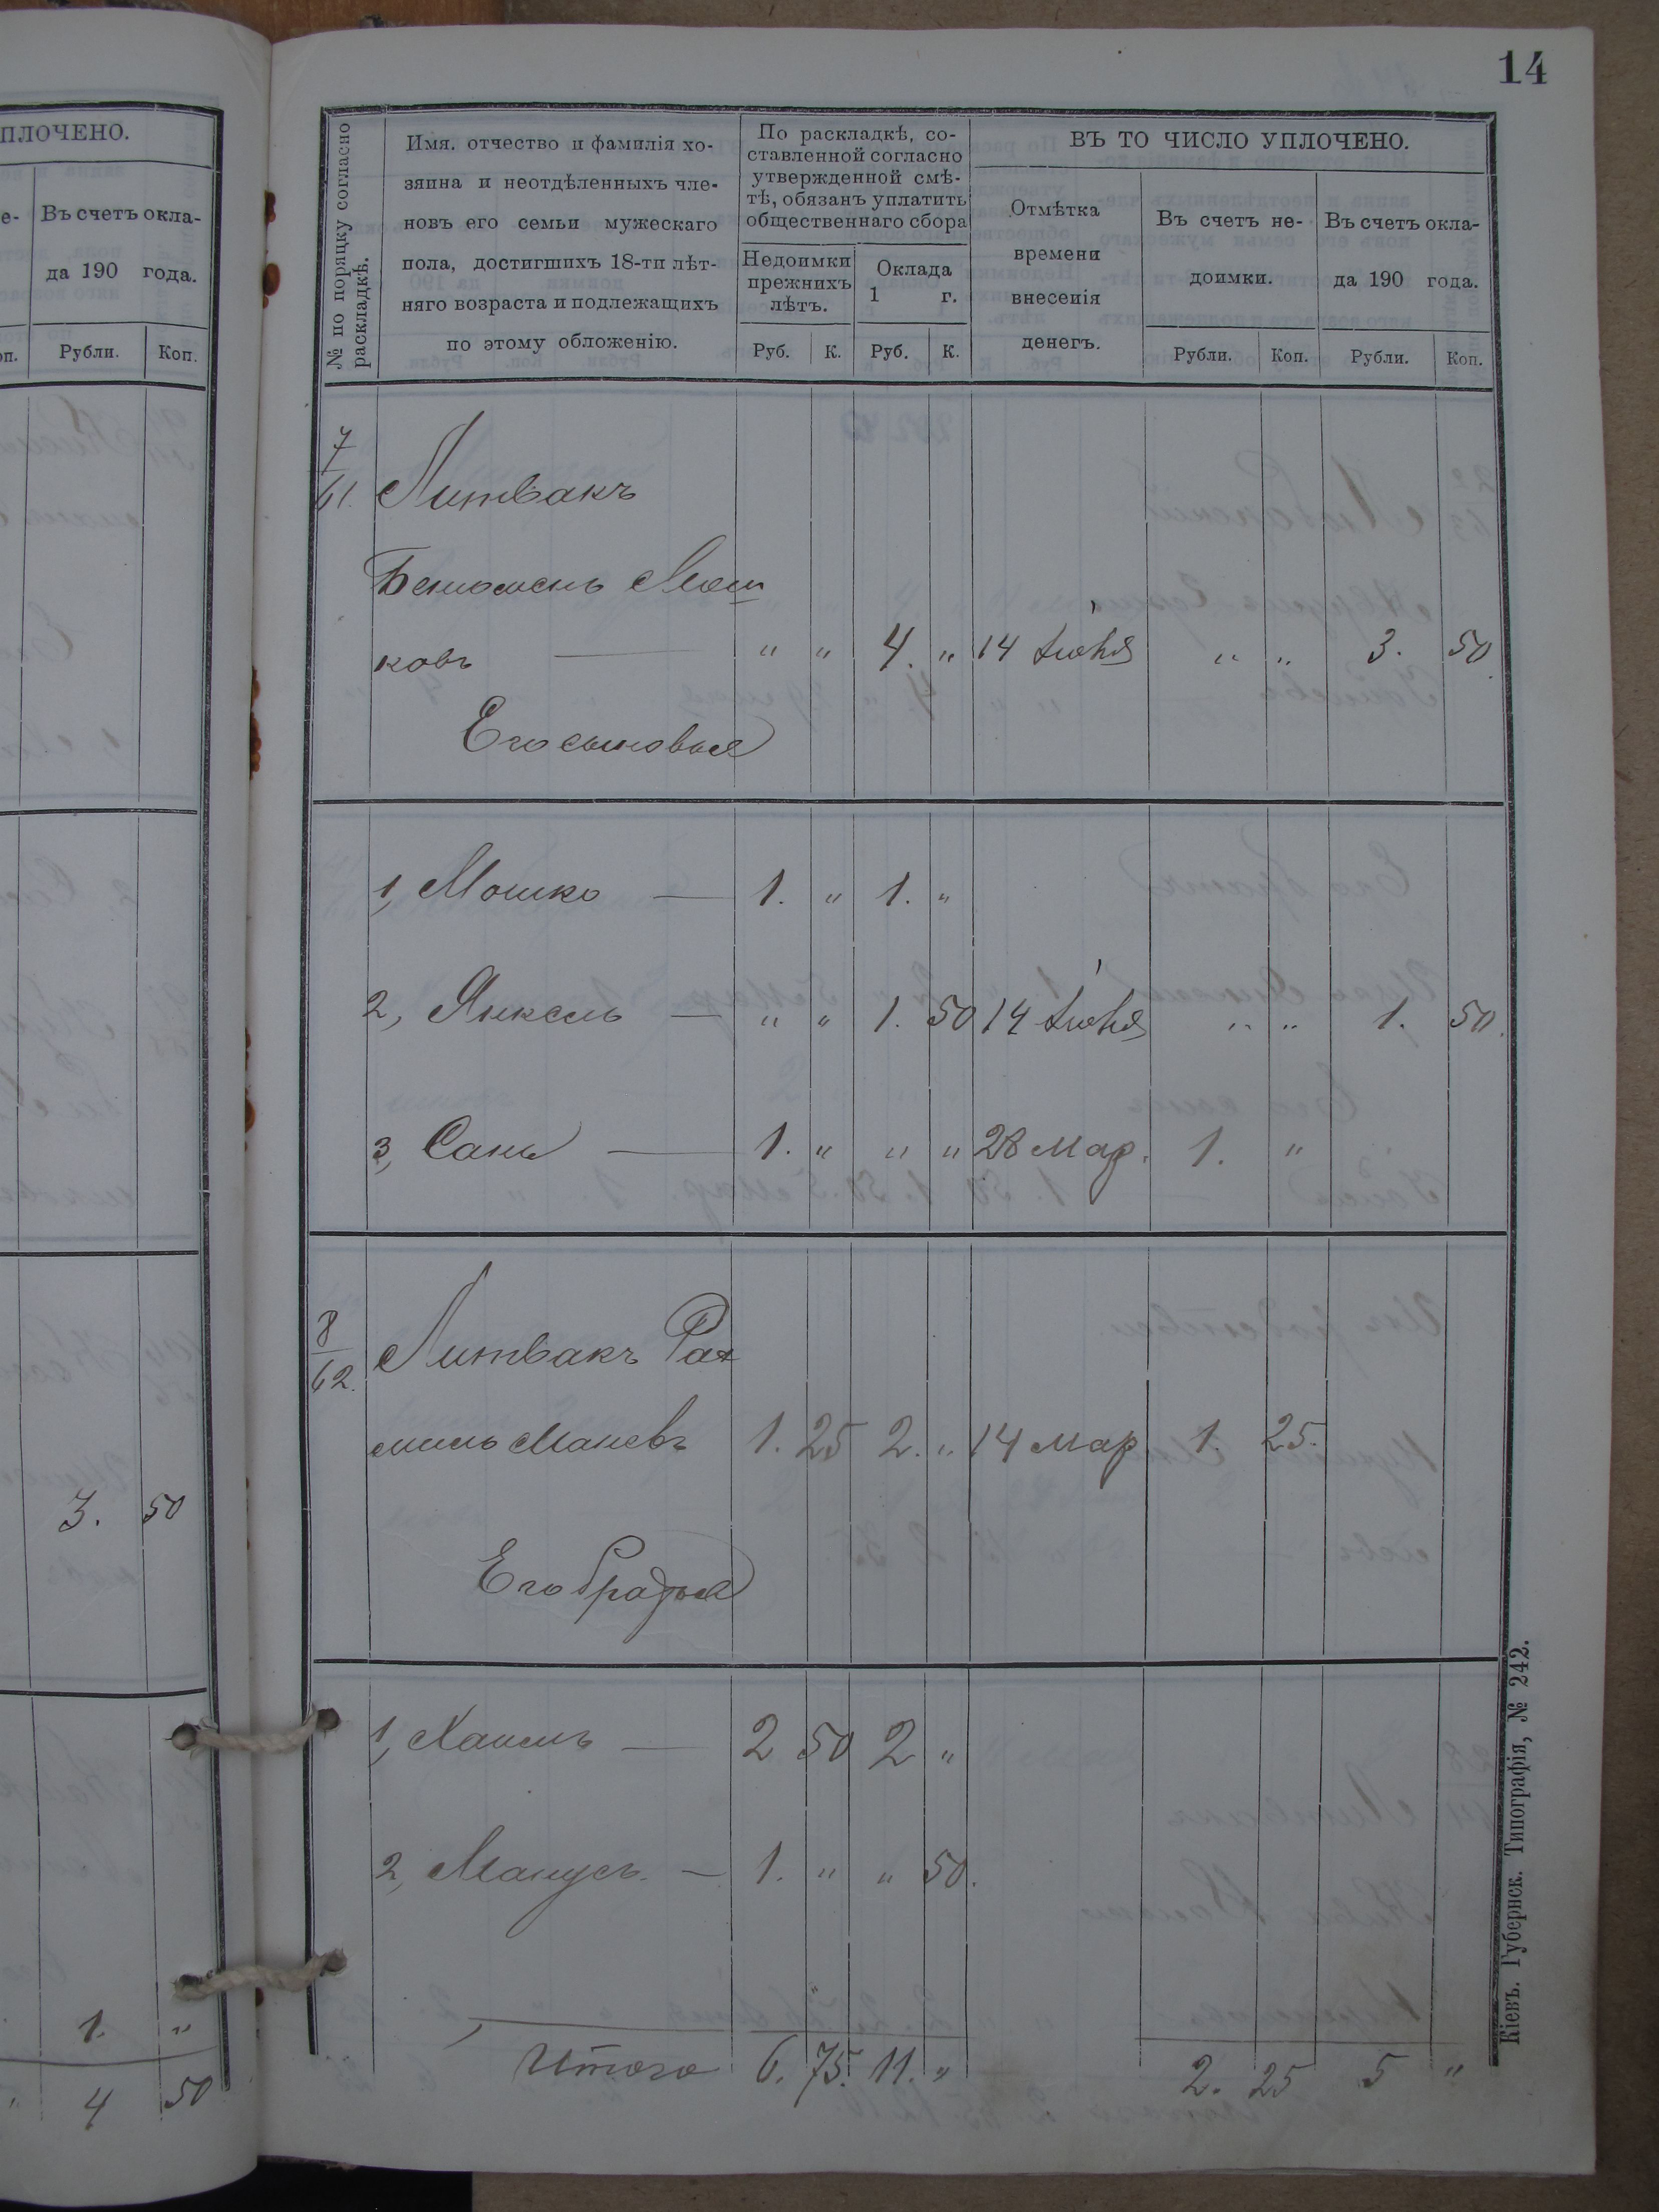 14
ПЛОЧЕНО.
Въ счетъ окла-
да 190 года.
Рубли. Коп.
3. 50
1. "
4 50
№ по порядку согласно раскладкѣ.
Имя. отчество и фамилія хо-
зяина и неотдѣленныхъ чле-
новъ его семьи мужескаго
пола, достигшихъ 18-ти лѣт-
няго возраста и подлежащихъ
по этому обложенію.
По раскладкѣ, со-
ставленной согласно
утвержденной смѣ-
тѣ, обязанъ уплатить
общественнаго сбора
Недоимки
прежнихъ
лѣтъ.
Оклада
1 г.
Руб. К. Руб. К.
ВЪ ТО ЧИСЛО УПЛОЧЕНО.
Отмѣтка
времени
внесенія
денегъ.
Въ счетъ не-
доимки.
Рубли. Коп.
Въ счетъ окла-
да 190 года.
Рубли. Коп.
7
61. Литвакъ
Мош
ковъ " " 4. " 14 Іюня " " 3. 50
Его сыновья
1, Мошко 1. " 1. "
2, Янкель " " 1. 50 14 Іюня " " 1. 50.
3, 1. " " " 28 Мар. 1. "
8
62. Литвакъ Рах
миль Маневъ 1. 25 2. " 14 Мар 1. 25.
Его братья
1, 2 50 2 "
2, Манусъ 1. " " 50.
Итого 6. 75. 11. " 2. 25 5 "
Кіевъ. Губернск. Типографія, № 242.